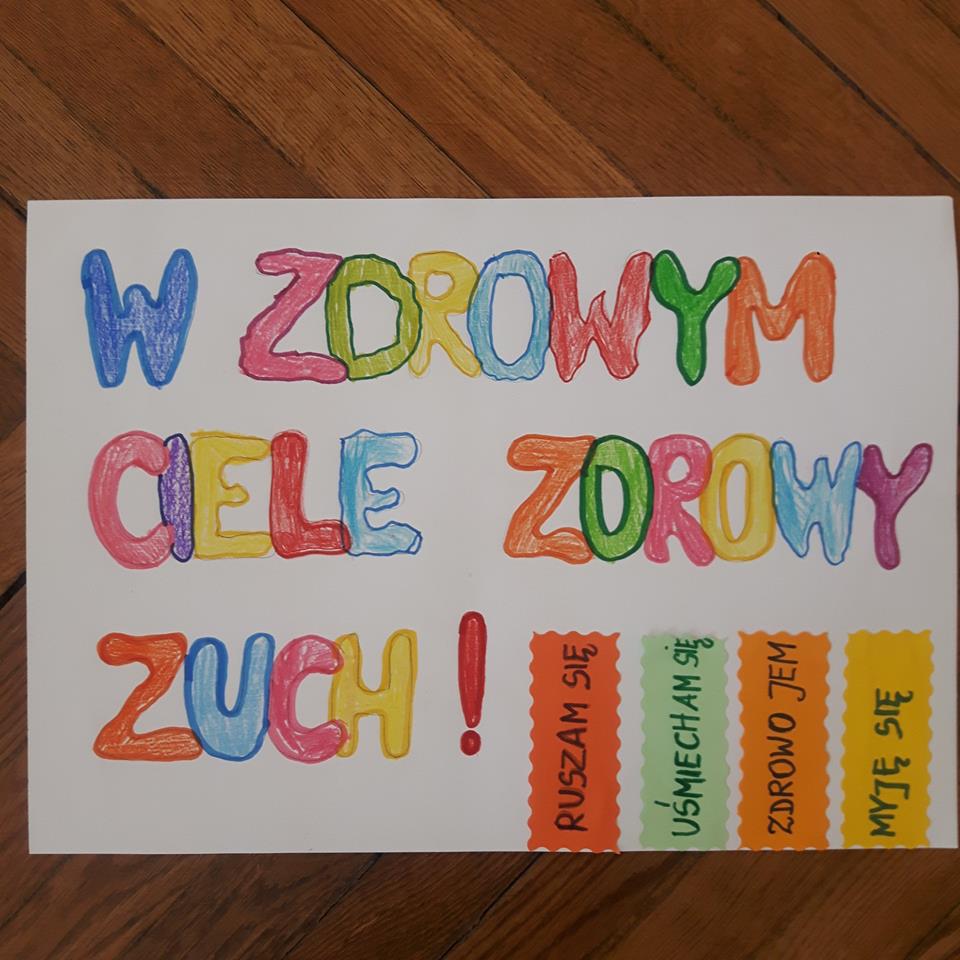 W ZDROWYM
CIELE ZDROWY
ZUCH!
RUSZAM SIĘ
UŚMIECHAM SIĘ
ZDROWO JEM
MYJĘ SIĘ